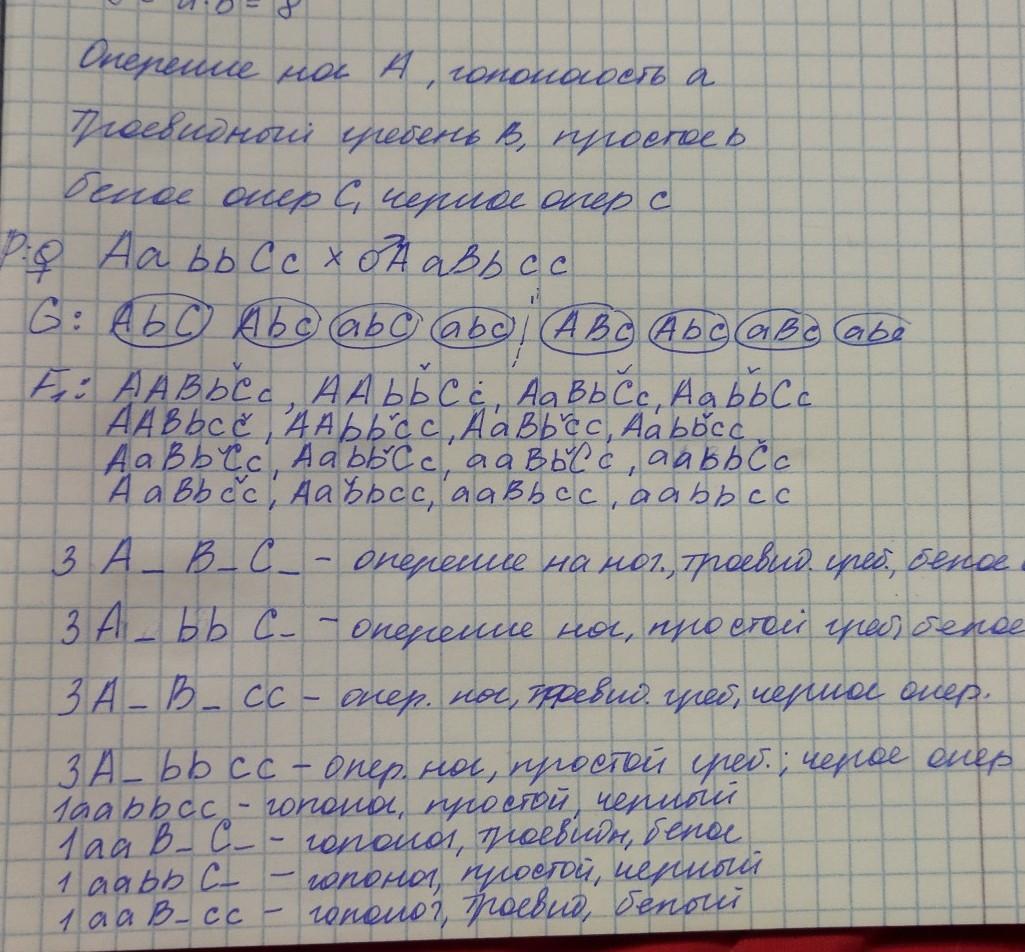 a·b = 8
Оперение ног A, голоногость a
Троевидный гребень B, простое b
белое опер C, черное опер c
P: ♀ Aa bb Cc × ♂ Aa Bb cc
G: AbC Abc abC abc ABc Abc aBc abc
F₁: AABbCc, AAbbCc, AaBbCc, AabbCc
AABbcc, AAbbcc, AaBbcc, Aabbcc
AaBbCc, AabbCc, aaBbCc, aabbCc
AaBbcc, Aabbcc, aaBbcc, aabbcc
3 A_ B_ C_ – оперение на ног., троевид. греб., белое
3 A_ bb C_ – оперение ног, простой греб, белое
3 A_ B_ cc – опер. ног, троевид. греб, черное опер.
3 A_ bb cc – опер. ног, простой греб.; черое опер
1 aabbcc – голоног, простой, черный
1 aa B_ C_ – голоног, троевидн, белое
1 aabb C_ – голоног, простой, черный
1 aa B_ cc – голоног, троевид, белый